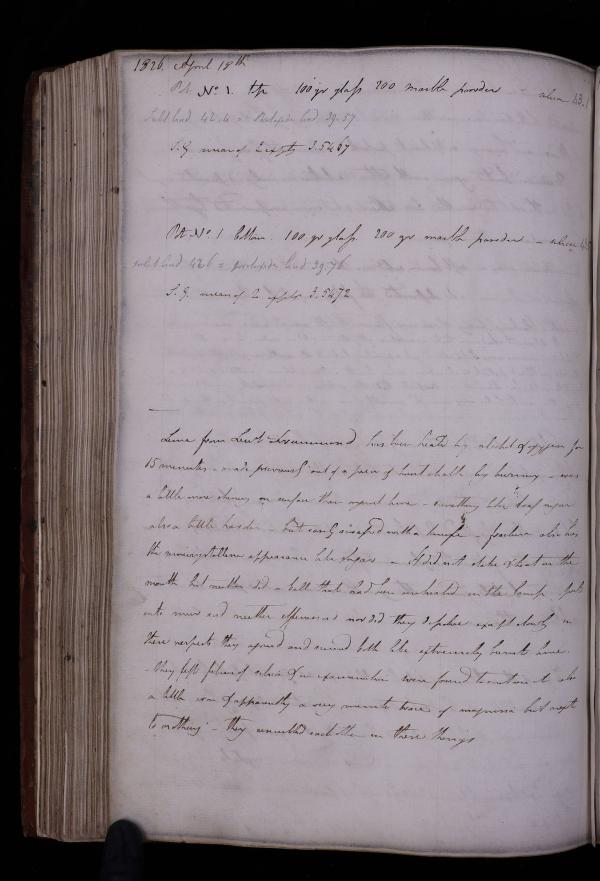 1826. April 18th
Pot No 1. top 100 gr glass 200 marble powder - silica 43.
Sulph lead 42.4 = Protoxide lead 39.57
S.G. mean of 2 expts 3.5467
Pot No 1 bottom. 100 gr glass. 200 gr marble powder - silica
Sulph lead 42.6 = protoxide lead 39.76
S.G. mean of 2 expts 3.5472
Lime from Lieut Drummond has been heated by alcohol & oxygen for
15 minutes - made previously out of a piece of burnt chalk by burning - was
a little more shining on surface than usual lime - something like loaf sugar
also a little harder - but easily scraped with a knife - fracture also has
the micro crystalline appearance like sugar - It did not slake & heat in the
mouth but neither did a ball that had been unheated in the lamp. Put
into mur acid neither effervesced nor did they dissolve except slowly in
these respects they agreed and seemed both like extremely burnt lime.
They left films of silica & on examination were found to contain it also
a little iron & apparently a very minute trace of magnesia but next
to nothing - they resembled each other in these things